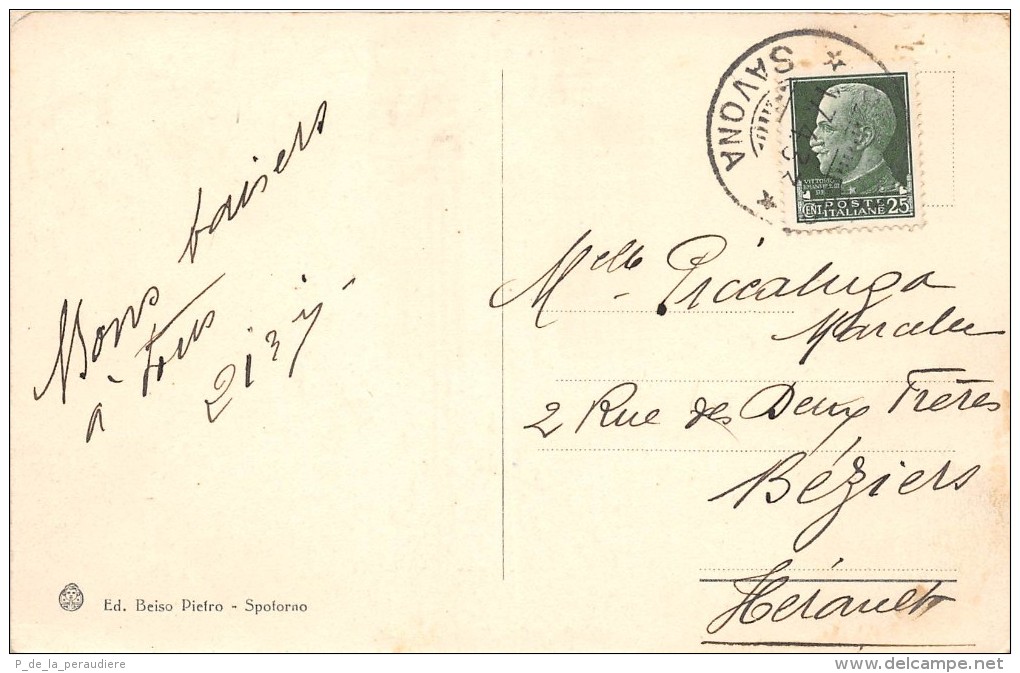 Bons baisers
a tous
SAVONA
VITTORIO
EMANUELE III
RE
POSTE
CENT ITALIANE 25
Melle Piccaluga
2 Rue des Deux Frères
Béziers
Hérault
Ed. Beiso Pietro - Spotorno
P_de_la_peraudiere
www.delcampe.net